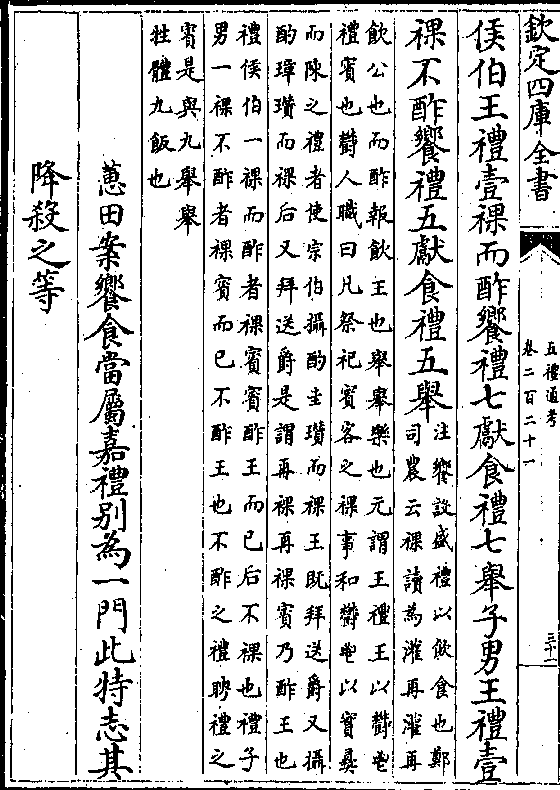 欽定四庫全書
五禮通考
卷二百二十一
三十二
侯伯王禮壹祼而酢饗禮七獻食禮七舉子男王禮壹
祼不酢饗禮五獻食禮五舉
注饗設盛禮以飲食也鄭
司農云祼讀為灌再灌再
飲公也而酢報飲王也舉舉樂也元謂王禮王以鬱鬯
禮賓也鬱人職曰凡祭祀賓客之祼事和鬱鬯以實彝
而陳之禮者使宗伯攝酌圭瓚而祼王既拜送爵又攝
酌璋瓚而祼后又拜送爵是謂再祼再祼賓乃酢王也
禮侯伯一祼而酢者祼賓賓酢王而已后不祼也禮子
男一祼不酢者祼賓而已不酢王也不酢之禮聘禮之
賓是與九舉舉
牲體九飯也
蕙田案饗食當屬嘉禮别為一門此特志其
降殺之等